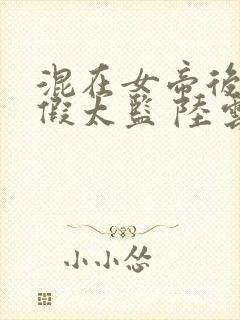 混在女帝後
假太監 陸雲
小小怂